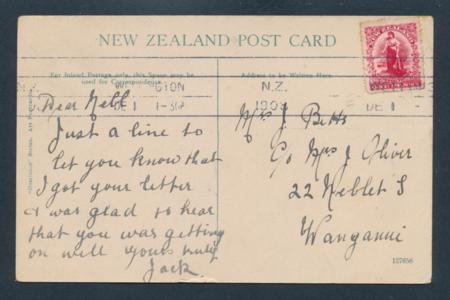 NEW ZEALAND POST CARD
For Inland Postage only, this Space may be
used for Correspondence.
Address to be Written Here.
N.Z.
DE 1 1-30P
DE 1
Dear Nell
Just a line to
let you know that
I got your letter
& was glad to hear
that you was getting
on well yours truly
Jack.
Mrs J Betts
C/o Mrs J Oliver
22 Keblet S
Wanganui
127656